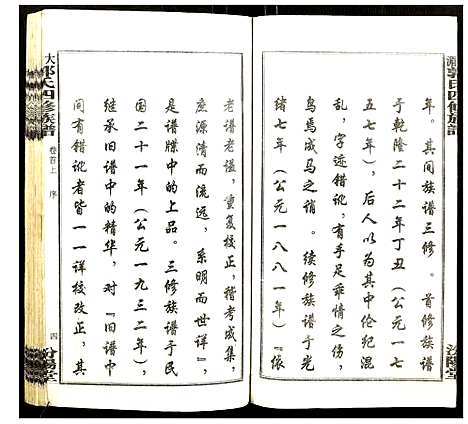 年。其间族谱三修。首修族谱
于乾隆二十二年丁丑（公元一七
五七年），后人以为其中伦纪混
乱，字迹错讹，有手足乖情之伤，
鸟焉成马之诮。续修族谱于光
绪七年（公元一八八一年）『依
老谱老谥，重复校正，稽考成集，
庶源清而流远，系明而世详』，
是谱牒中的上品。三修族谱于民
国二十一年（公元一九三二年），
继承旧谱中的精华，对『旧谱中
间有错讹者皆一一详校改正，其
郭氏四修族譜
汾陽堂
大
郭氏四修族譜
卷首上 序
四
汾陽堂